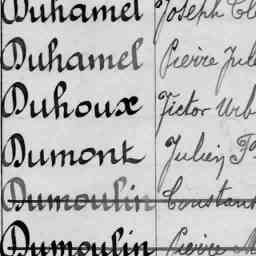 Duhamel Joseph
Duhamel Pierre
Duhoux Victor
Dumont Julien
Dumoulin
Dumoulin Pierre